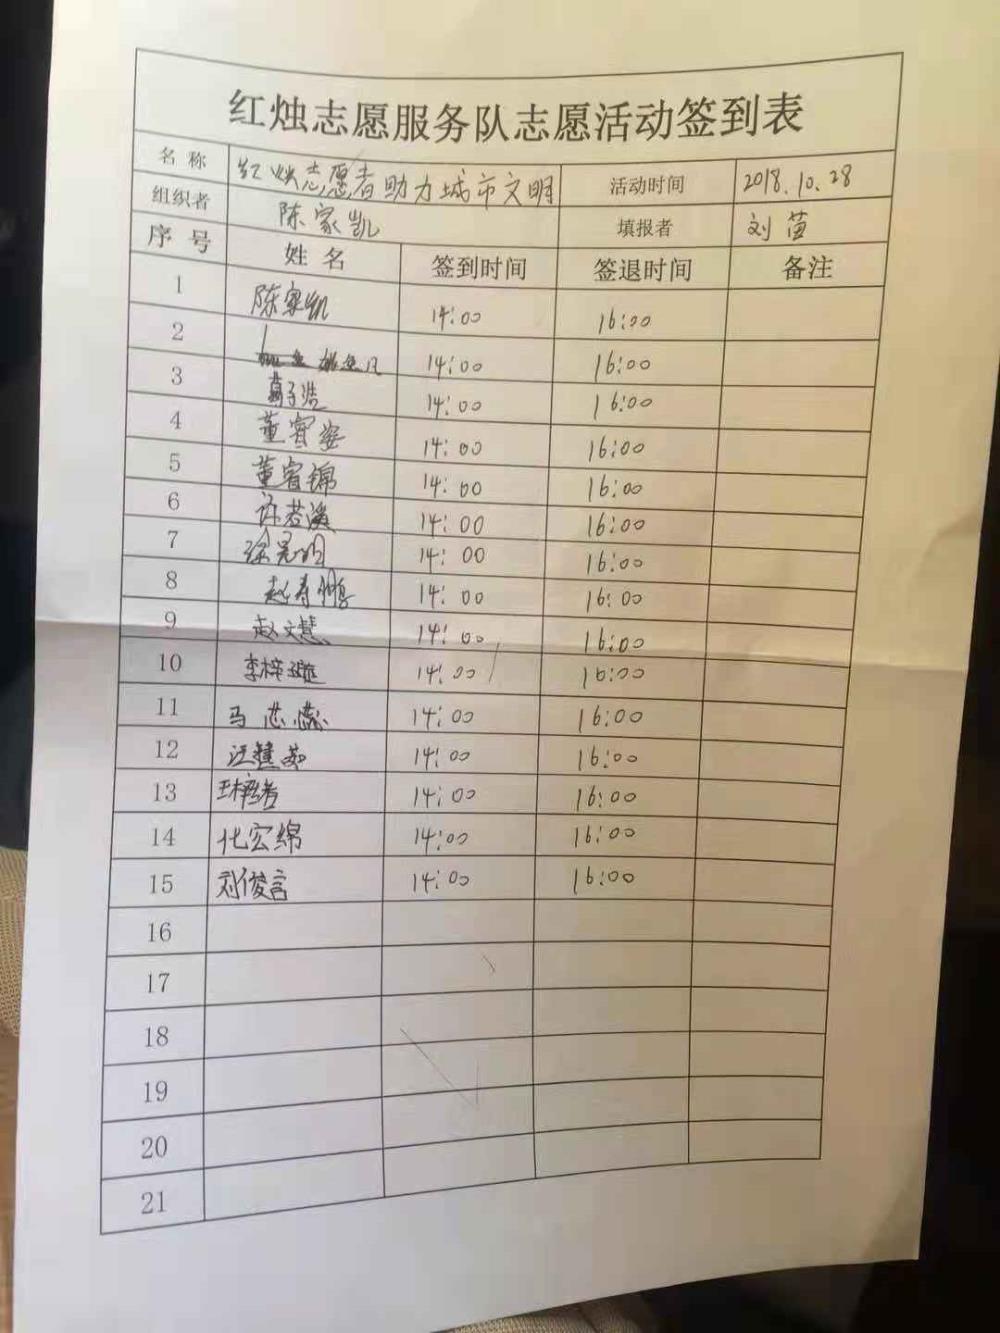 红烛志愿服务队志愿活动签到表
名 称 红烛志愿者助力城市文明 活动时间 2018.10.28
组织者 陈家凯 填报者 刘
序 号 姓 名 签到时间 签退时间 备注
1 陈家凯 14:00 16:00
2 14:00 16:00
3 14:00 16:00
4 董 姿 14:00 16:00
5 董 锦 14:00 16:00
6 许若溪 14:00 16:00
7 14:00 16:00
8 赵寿鹏 14:00 16:00
9 赵文慧 14:00 16:00
10 李梓 14:00 16:00
11 马芯蕊 14:00 16:00
12 汪慧茹 14:00 16:00
13 14:00 16:00
14 化宏绵 14:00 16:00
15 刘俊言 14:00 16:00
16
17
18
19
20
21